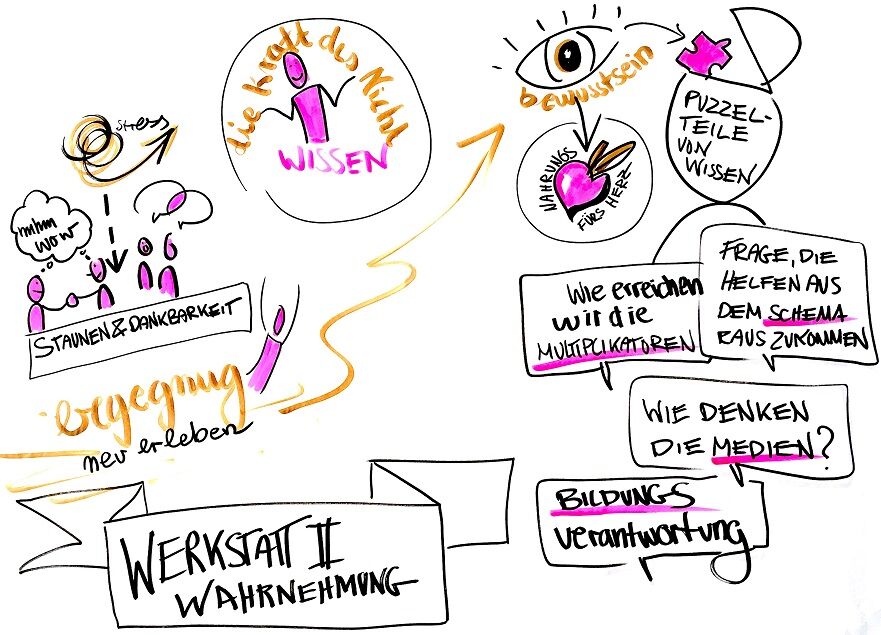 die Kraft des Nicht
WISSEN
stress
mhhm
WOW
STAUNEN & DANKBARKEIT
begegnug
neu erleben
WERKSTATT II
WAHRNEHMUNG
bewusstsein
PUZZEL-
TEILE
VON
WISSEN
NAHRUNGS
FÜRS HERZ
Wie erreichen
wir die
MULTIPLIKATOREN
FRAGE, DIE
HELFEN AUS
DEM SCHEMA
RAUS ZUKOMMEN
WIE DENKEN
DIE MEDIEN?
BILDUNGS
verantwortung